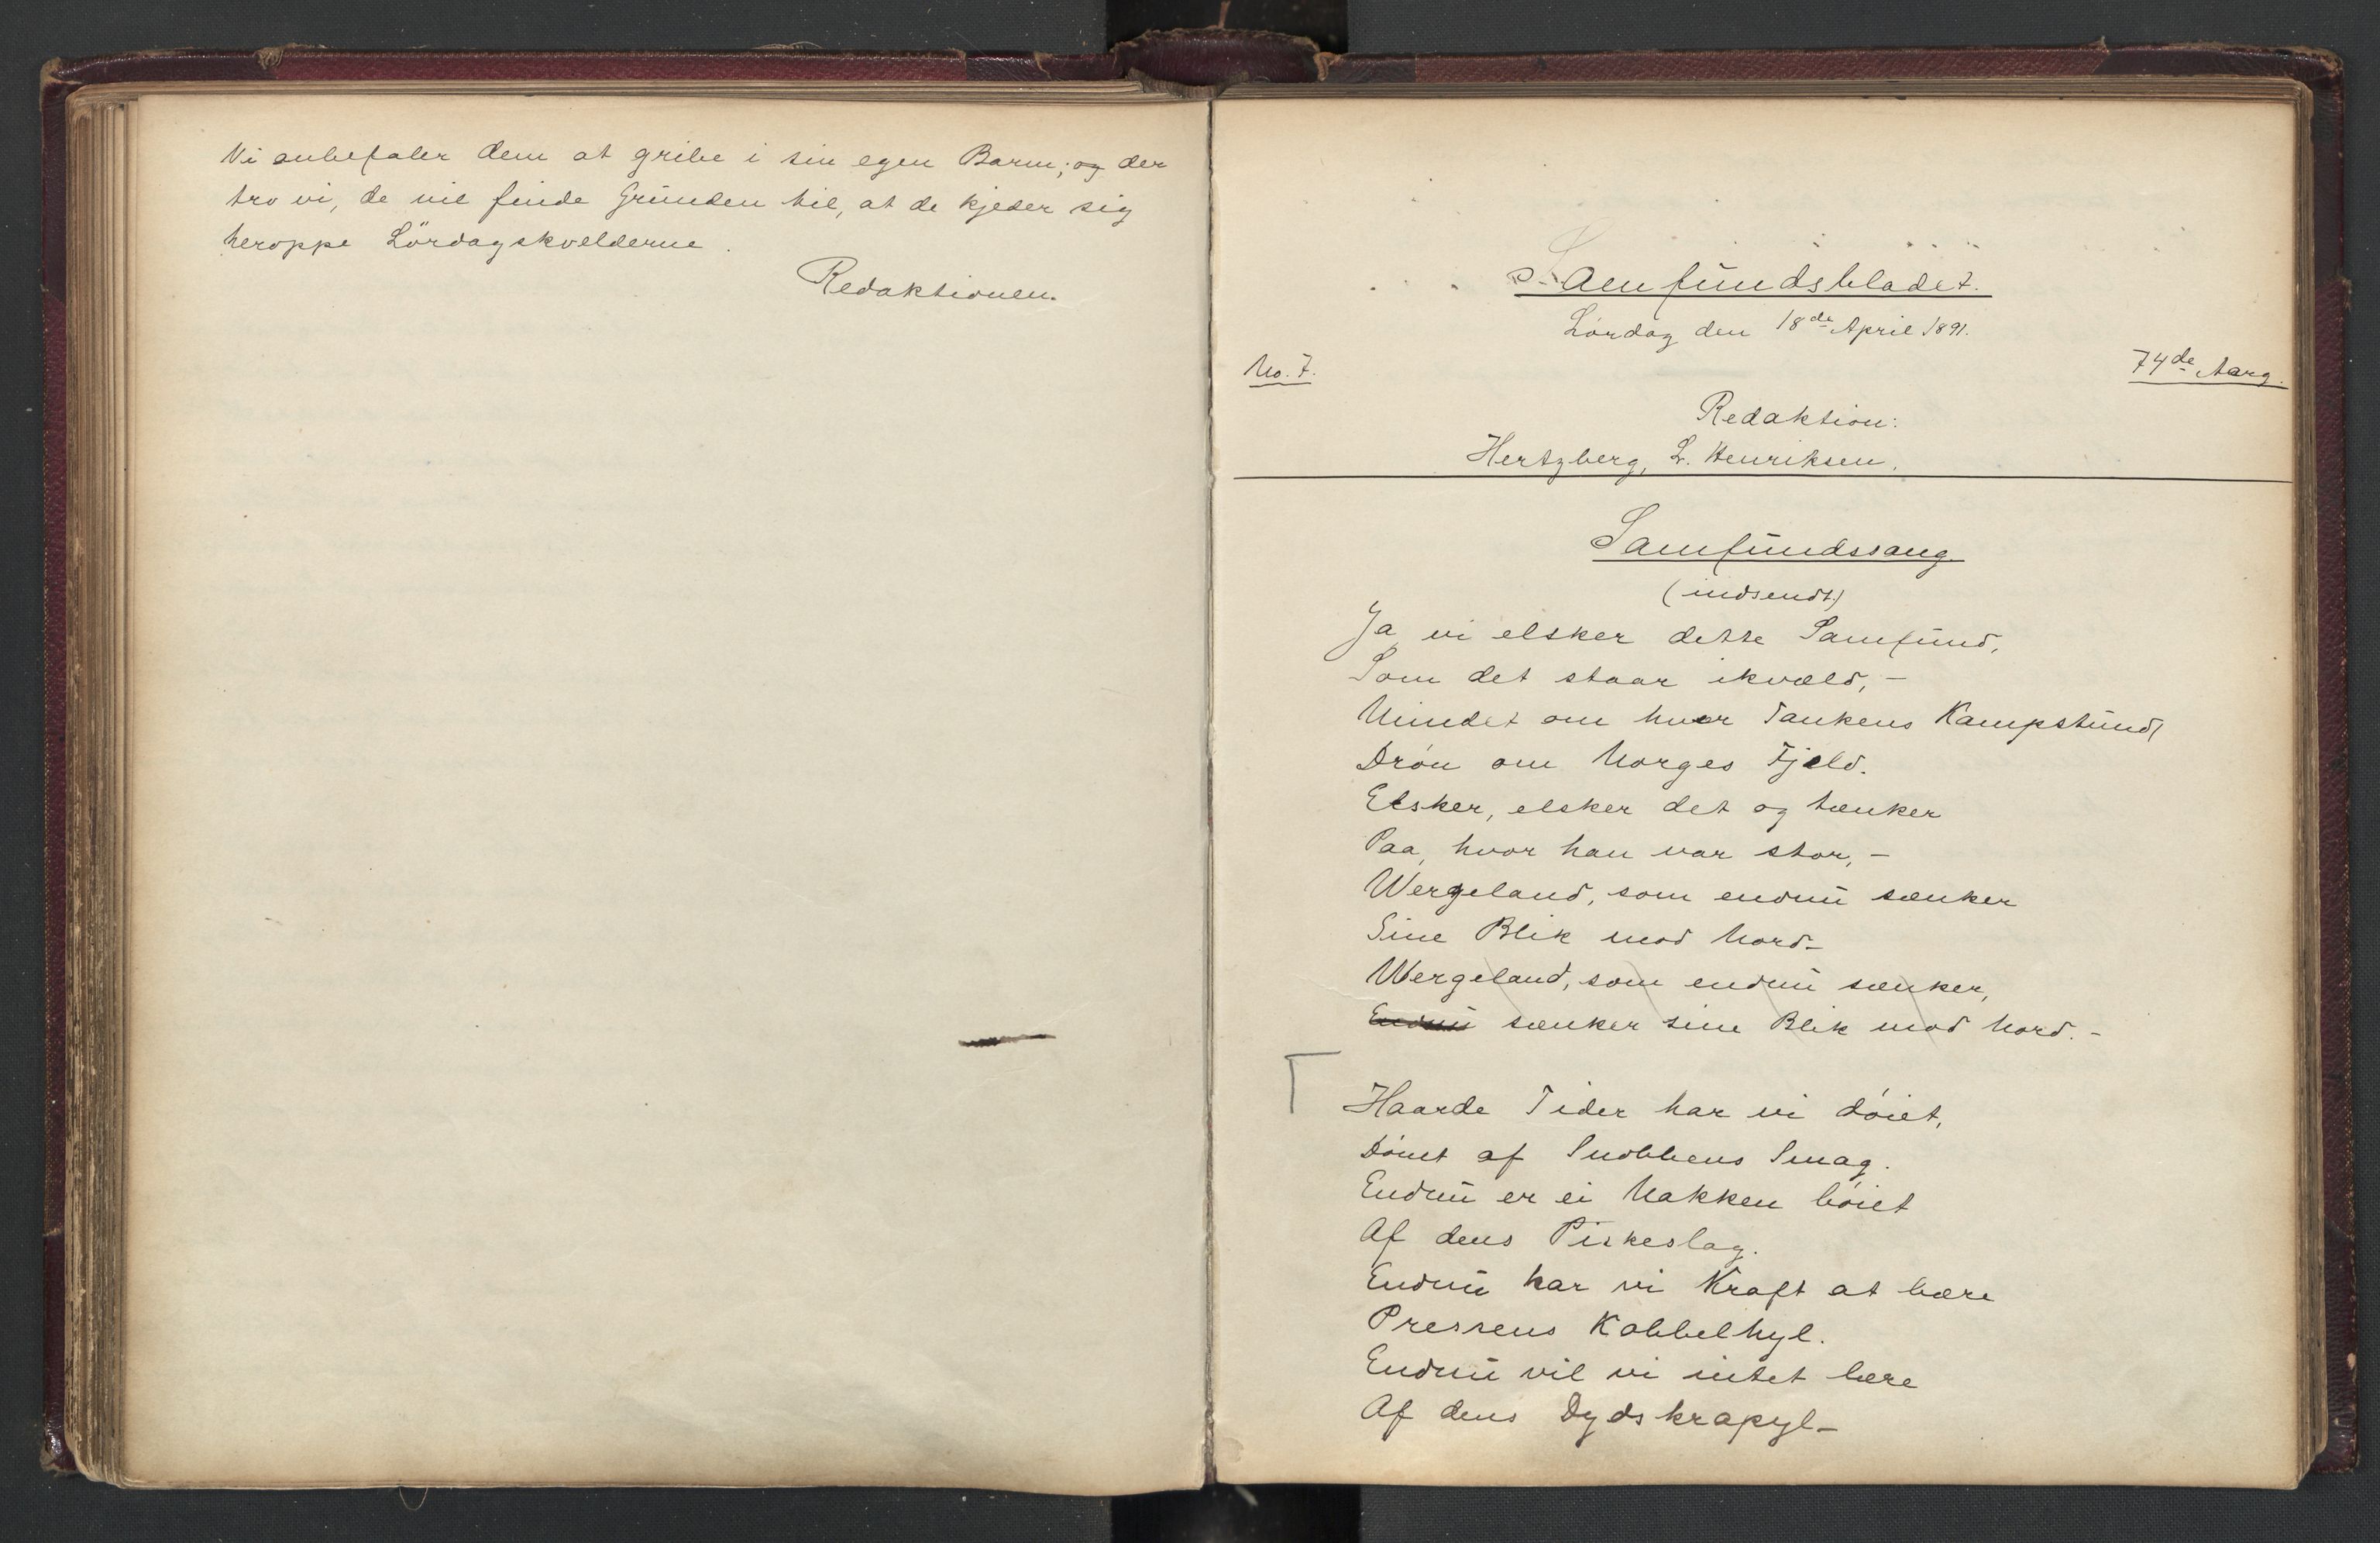 Vi anbefaler dem at gribe i sin egen Barm; og der
tro vi, de vil finde Grunden til, at de kjeder sig
heroppe Lördagskvelderne.
Redaktionen.
Samfundsbladet.
Lördag den 18de April 1891.
No. 7. 74de Aarg.
Redaktion:
Hertzberg, L. Henriksen.
Samfundssang
(indsendt.)
Ja, vi elsker dette Samfund,
Som det staar ikvæld, –
Mindet om hver Tankens Kampstund,
Drøn om Norges Fjeld.
Elsker, elsker det og tænker
Paa, hvor han var stor, –
Wergeland, som endnu sænker
Sine Blik mod Nord –
Wergeland, som endnu sænker,
Endnu sænker sine Blik mod Nord. –
Haarde Tider har vi døiet,
Dømt af Snobbens Smag.
Endnu er ei Nakken bøiet
Af dens Piskeslag.
Endnu har vi Kraft at bære
Pressens Kobbelhyl.
Endnu vil vi intet lære
Af dens Dydskrapyl –